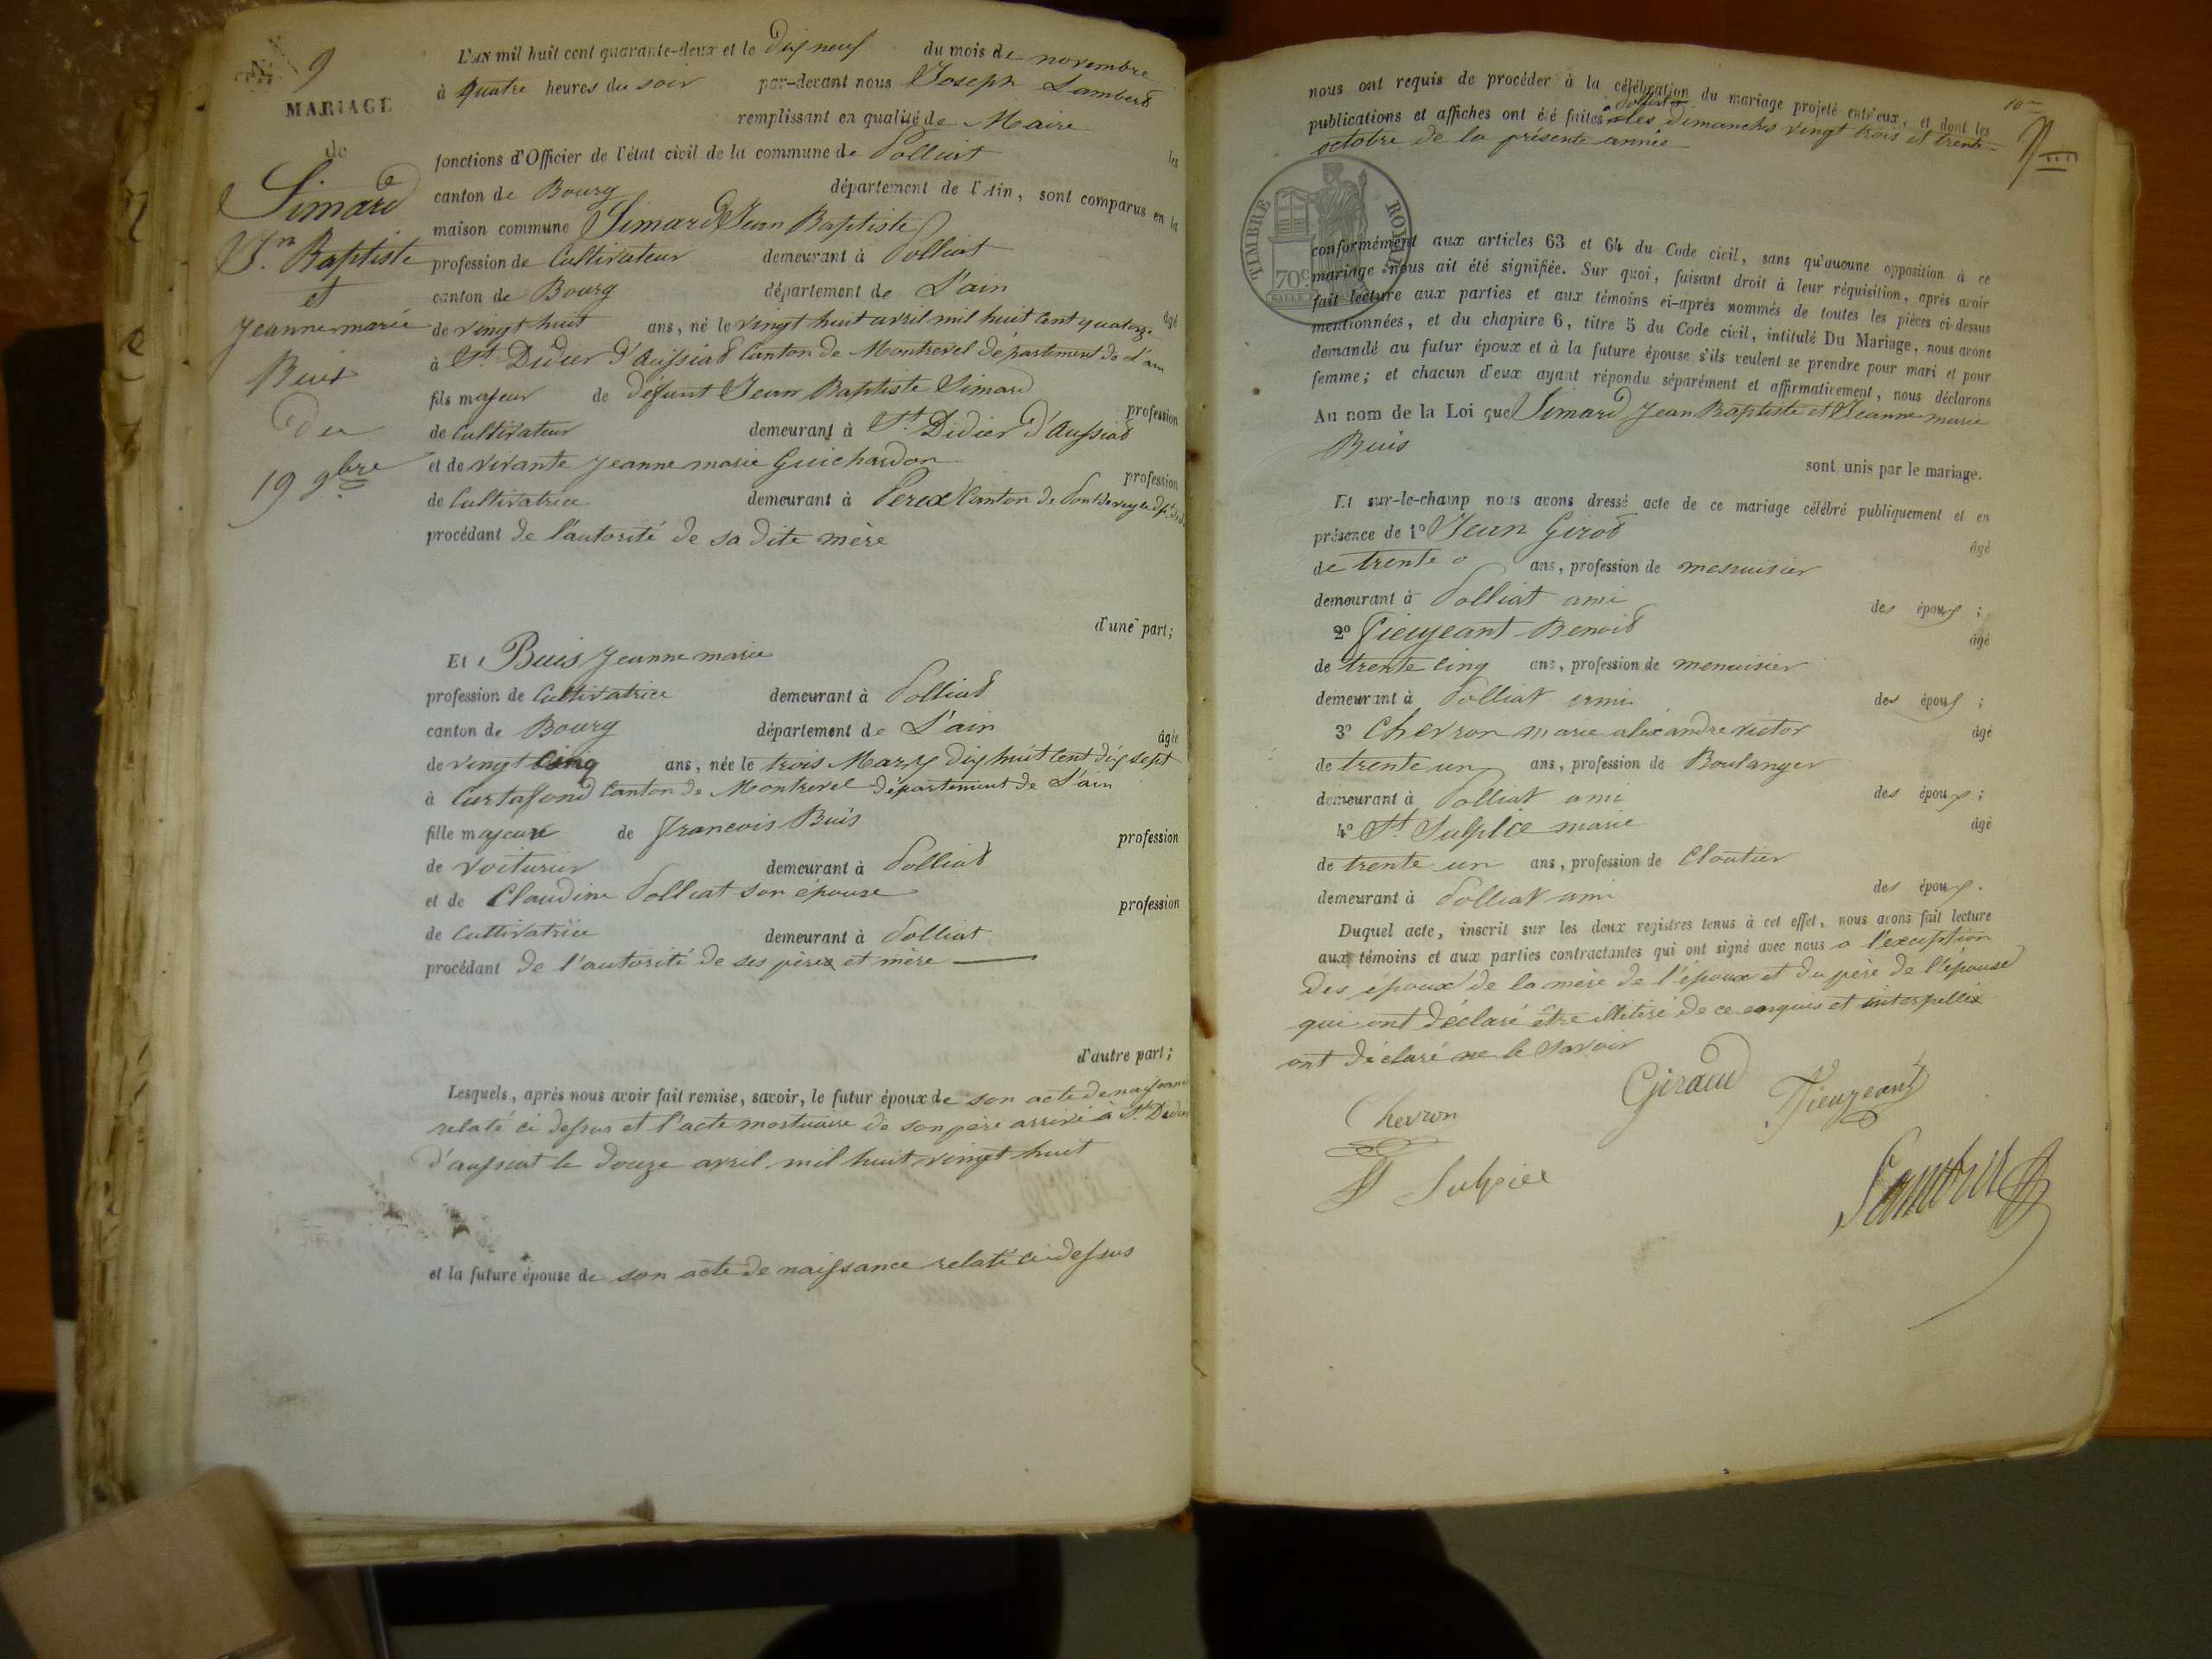 N° 9
MARIAGE
de
Simard
Jn. Baptiste
et
Jeanne marie
Buis
Du
19 9bre
L'AN mil huit cent quarante-deux et le dix neuf du mois de novembre
à quatre heures du soir par-devant nous Joseph Lambert
remplissant en qualité de Maire les
fonctions d'Officier de l'état civil de la commune de Polliat
canton de Bourg département de l'Ain, sont comparus en la
maison commune Simard Jean Baptiste
profession de Cultivateur demeurant à Polliat
canton de Bourg département de L'ain âgé
de vingt huit ans, né le vingt huit avril mil huit cent quatorze
à St. Didier d'Aussiat Canton de Montrevel département de L'ain
fils majeur de défunt Jean Baptiste Simard profession
de Cultivateur demeurant à St. Didier d'Aussiat
et de vivante Jeanne marie Guichardon profession
de Cultivatrice demeurant à Perex Canton de Pont de veyle
procédant de l'autorité de sa dite mère
d'une part;
Et Buis Jeanne marie
profession de Cultivatrice demeurant à Polliat
canton de Bourg département de L'ain âgée
de vingt cinq ans, née le trois Mars dix huit cent dix sept
à Curtafond Canton de Montrevel département de L'ain
fille majeure de Francois Buis profession
de voiturier demeurant à Polliat
et de Claudine Polliat son épouse profession
de Cultivatrice demeurant à Polliat
procédant de l'autorité de ses père et mère
d'autre part;
Lesquels, après nous avoir fait remise, savoir, le futur époux de son acte de naissance
relaté ci dessus et l'acte mortuaire de son père arrivé à St. Didier
d'aussiat le douze avril mil huit vingt huit
et la future épouse de son acte de naissance relaté ci dessus
10
nous ont requis de procéder à la célébration du mariage projeté entr'eux, et dont les
publications et affiches ont été faites à Polliat les dimanches vingt trois et trente
octobre de la présente année
TIMBRE ROYAL
70 c.
conformément aux articles 63 et 64 du Code civil, sans qu'aucune opposition à ce
mariage nous ait été signifiée. Sur quoi, faisant droit à leur réquisition, après avoir
fait lecture aux parties et aux témoins ci-après nommés de toutes les pièces ci-dessus
mentionnées, et du chapitre 6, titre 5 du Code civil, intitulé Du Mariage, nous avons
demandé au futur époux et à la future épouse s'ils veulent se prendre pour mari et pour
femme; et chacun d'eux ayant répondu séparément et affirmativement, nous déclarons
Au nom de la Loi que Simard Jean Baptiste et Jeanne marie
Buis
sont unis par le mariage.
Et sur-le-champ nous avons dressé acte de ce mariage célébré publiquement et en
présence de 1° Jean Girod âgé
de trente ans, profession de menuisier
demeurant à Polliat ami des époux;
2° Tieugeant Benoit âgé
de trente cinq ans, profession de menuisier
demeurant à Polliat ami des époux;
3° Chevron marie alexandre victor âgé
de trente un ans, profession de Boulanger
demeurant à Polliat ami des époux;
4° St. Sulpice marie âgé
de trente un ans, profession de Cloutier
demeurant à Polliat ami des époux.
Duquel acte, inscrit sur les deux registres tenus à cet effet, nous avons fait lecture
aux témoins et aux parties contractantes qui ont signé avec nous a l'exception
des époux de la mère de l'époux et du père de l'épouse
qui ont déclaré être illétéré de ce enquis et interpellés
ont déclaré ne le savoir
Giraud Tieugeant
Chevron
St Sulpice
Lambert